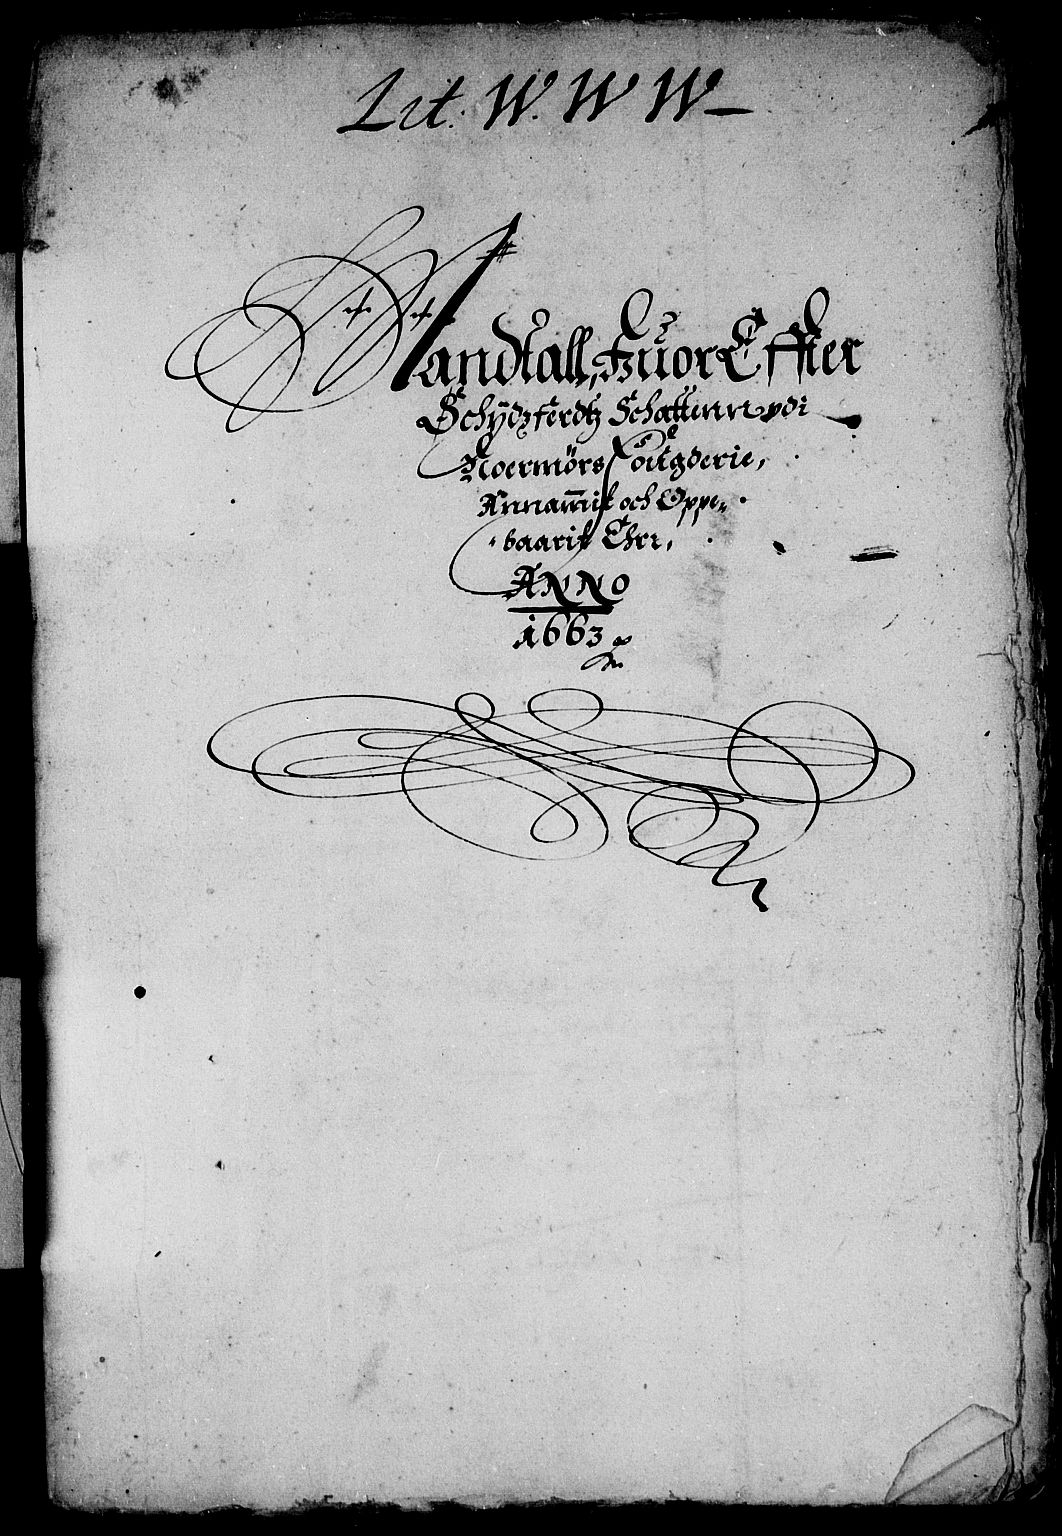 Lit. W. W W
Mandtall, huor Effter
Schÿdzferdtz Schatten
Noermörs fougderie,
Annammit och Oppe„
baarit Ehr,
ANNO
1663